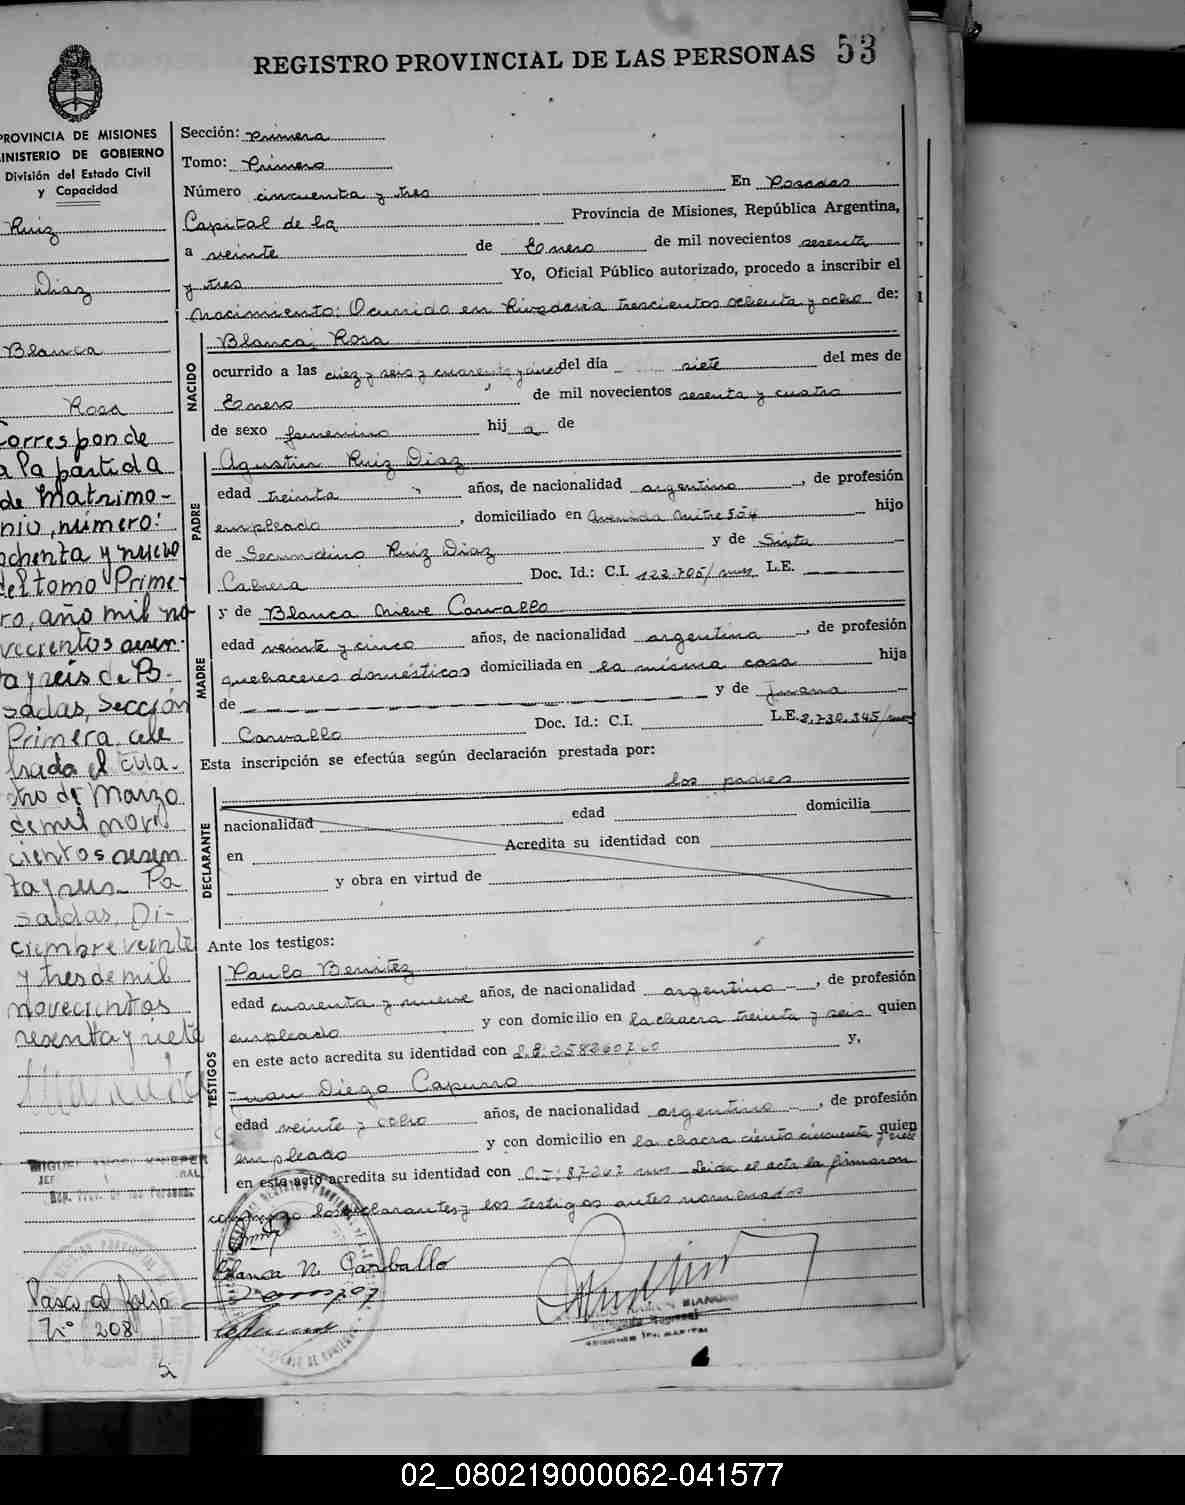 REGISTRO PROVINCIAL DE LAS PERSONAS 53
PROVINCIA DE MISIONES
MINISTERIO DE GOBIERNO
División del Estado Civil
y Capacidad
Ruiz
Diaz
Blanca
Rosa
Corresponde
a la partida
de Matrimo-
nio, número:
ochenta y nueve
del tomo Prime-
ro, año mil no-
vecientos sesen-
ta y seis de Po-
sadas, Sección
Primera, cele
brada el cua-
tro de Marzo
de mil nove
cientos sesen
ta y seis. Po
sadas, Di-
ciembre veinte
y tres de mil
novecientos
sesenta y siete
MIGUEL ANGEL KNEPER
JEF
Reg. Prov. de las Personas
Pasa al folio
Nº 208
Sección: Primera
Tomo: Primero
Número cincuenta y tres En Posadas
Capital de la Provincia de Misiones, República Argentina,
a veinte de Enero de mil novecientos sesenta
y tres Yo, Oficial Público autorizado, procedo a inscribir el
Nacimiento: Ocurrido en Rivadavia trescientos ochenta y ocho de:
NACIDO
Blanca Rosa
ocurrido a las diez y seis y cuarenta y cinco del día siete del mes de
Enero de mil novecientos sesenta y cuatro
de sexo femenino hij a de
PADRE
Agustin Ruiz Diaz
edad treinta años, de nacionalidad argentino, de profesión
empleado, domiciliado en Avenida Mitre 504 hijo
de Secundino Ruiz Diaz y de Sixta
Cabrera Doc. Id.: C.I. 122.705/mns L.E.
MADRE
y de Blanca Nieve Carvallo
edad veinte y cinco años, de nacionalidad argentina, de profesión
quehaceres domésticos domiciliada en la misma casa hija
de y de Juana
Carvallo Doc. Id.: C.I. L.E. 2.730.345/mns
Esta inscripción se efectúa según declaración prestada por:
los padres
DECLARANTE
nacionalidad edad domicilia
en Acredita su identidad con
y obra en virtud de
Ante los testigos:
TESTIGOS
Paulo Benitez
edad cuarenta y nueve años, de nacionalidad argentino, de profesión
empleado y con domicilio en la chacra treinta y seis quien
en este acto acredita su identidad con y,
Juan Diego Capurro
edad veinte y ocho años, de nacionalidad argentino, de profesión
empleado y con domicilio en la chacra ciento cincuenta y siete quien
en este acto acredita su identidad con C.I: 87.267 mns Leida el acta la firmaron
conmigo los declarantes y los testigos antes nombrados
Blanca N. Carballo
02_080219000062-041577